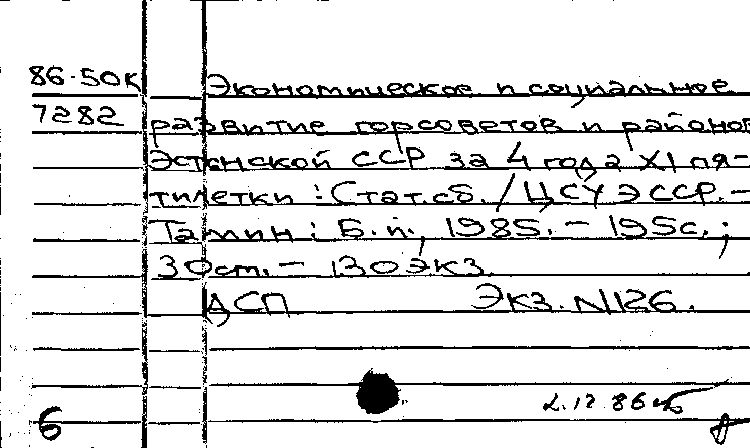 86-50к Экономическое и социальное
7282 развитие горсоветов и районов
Эстонской ССР за 4 года XI пя-
тилетки : Стат.сб. / ЦСУ ЭССР. -
Таллин : Б.и., 1985. - 195с. ;
30см. - 130экз.
ДСП Экз. N126.
2.12.86
6